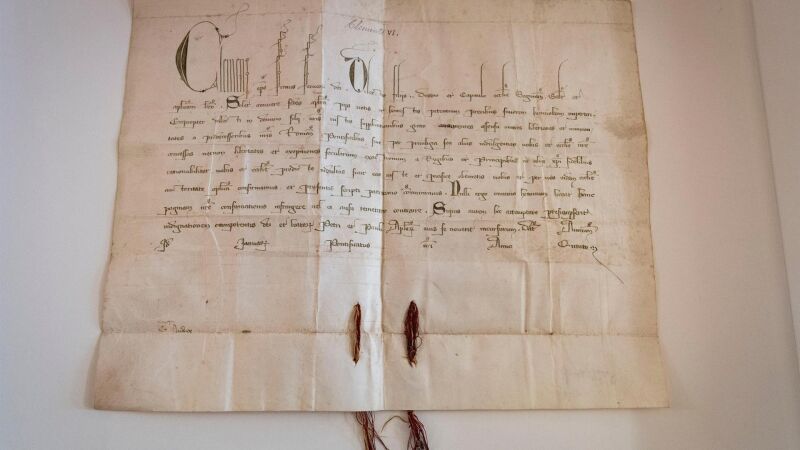 Clementi VI.
Clemens eps seruus seruor dei. Dil filiis Decano et Capitulo ecclie Saltm et
aplicam ben. Solet annuere sedes aplica piis votis et honestis petentium precibus fauorem beniuolum impertiri.
Eapropter dilecti in domino filii vris iustis supplicationibus grato concurrentes assensu omnes libertates et immuni
tates a predecessoribus nris Romanis Pontificibus siue per priuilegia seu alias indulgentias vobis et ecclie vre
concessas necnon libertates et exemptiones secularium exactionum a Regibus et Principibus et aliis xpi fidelibus
rationabiliter vobis et ecclie indultas sicut eas iuste et pacifice obtinetis vobis et per vos eidem ecclie
auctoritate aplica confirmamus et presentis scripti patrocinio communimus. Nulli ergo omnino hominum liceat hanc
paginam nre confirmationis infringere uel ei ausu temerario contraire. Siquis autem hoc attemptare presumpserit
indignationem omnipotentis dei et beator Petri et Pauli Aplor eius se nouerit incursurum. Dat Auinion
Januarij Pontificatus nri Anno Octauo